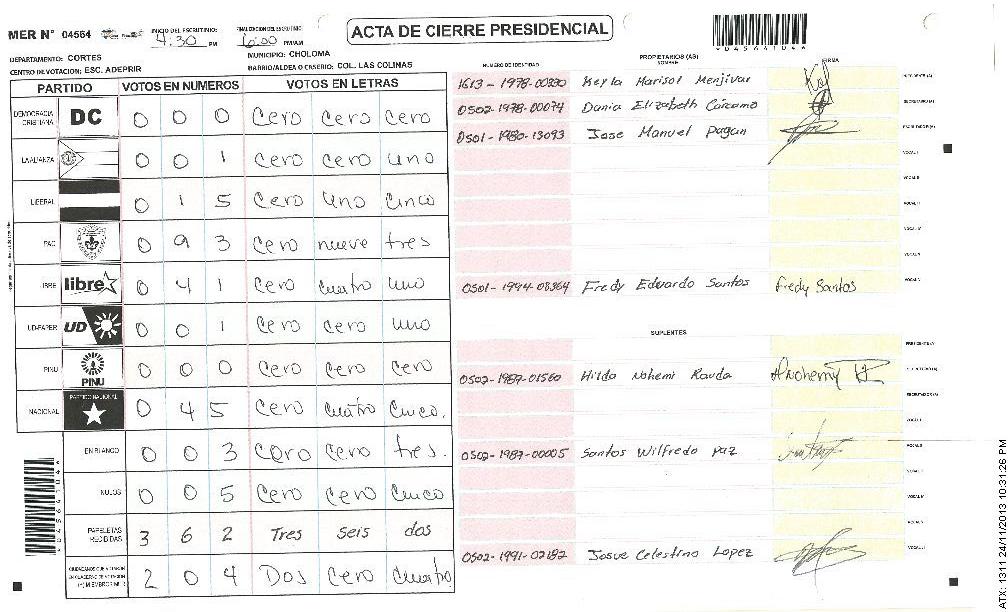 MER N° 04564
INICIO DEL ESCRUTINIO: 4:30 PM
FINALIZACION DEL ESCRUTINIO: 6:00 PM/AM
ACTA DE CIERRE PRESIDENCIAL
DEPARTAMENTO: CORTES
MUNICIPIO: CHOLOMA
CENTRO DE VOTACION: ESC. ADEPRIR
BARRIO/ALDEA O CASERIO: COL. LAS COLINAS
PARTIDO VOTOS EN NUMEROS VOTOS EN LETRAS
DEMOCRACIA CRISTIANA DC 0 0 0 Cero Cero Cero
LA ALIANZA 0 0 1 Cero Cero uno
LIBERAL 0 1 5 Cero uno Cinco
PAC 0 9 3 Cero nueve tres
LIBRE libre 0 4 1 Cero cuatro uno
UD-FAPER UD 0 0 1 Cero cero uno
PINU PINU 0 0 0 Cero Cero Cero
NACIONAL PARTIDO NACIONAL 0 4 5 Cero cuatro cinco.
EN BLANCO 0 0 3 Cero Cero tres.
NULOS 0 0 5 Cero Cero Cinco
PAPELETAS RECIBIDAS 3 6 2 Tres seis dos
CIUDADANOS QUE VOTARON EN CUADERNO DE VOTACION 2 0 4 Dos Cero Cuatro
NUMERO DE IDENTIDAD PROPIETARIOS (AS) NOMBRE FIRMA
1613-1978-00330 Keyla Marisol Menjivar
0502-1978-00074 Dania Elizabeth Cárcamo
0501-1980-13093 Jose Manuel Pagan
0501-1994-08364 Fredy Eduardo Santos Fredy Santos
SUPLENTES
0502-1987-01560 Hilda Nohemi Rauda
0502-1987-00005 Santos Wilfredo paz
0502-1991-02182 Josue Celestino Lopez
ATX: 1311 24/11/2013 10:31:26 PM